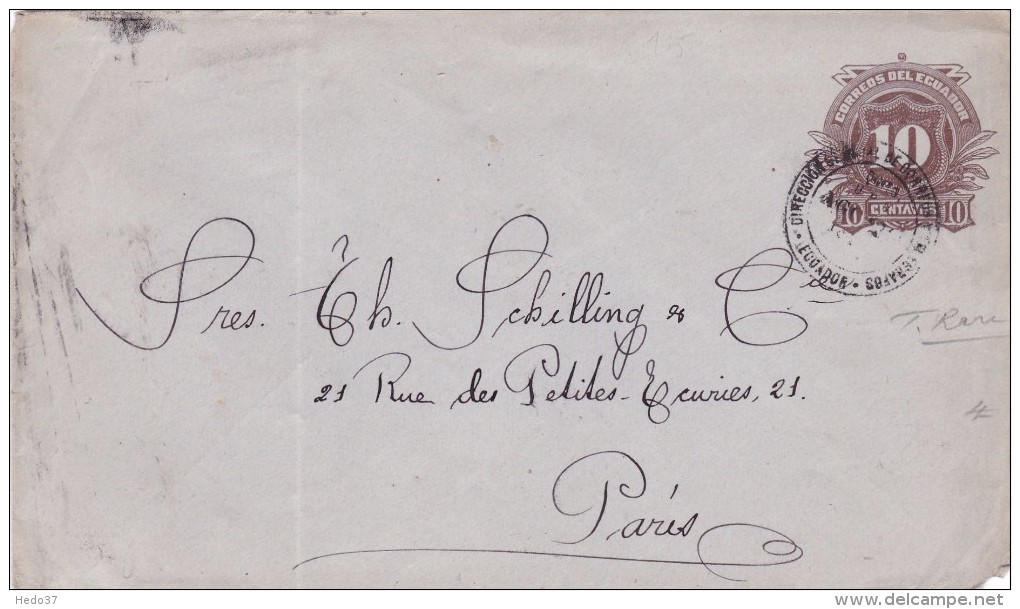 15
CORREOS DEL ECUADOR
10
10 CENTAVOS 10
DIRECCION GENERAL DE
ECUADOR
Sres. Th. Schilling & Cie
T. Rare
21 Rue des Petites-Ecuries, 21.
4
París
Hedo37
delcampe.net